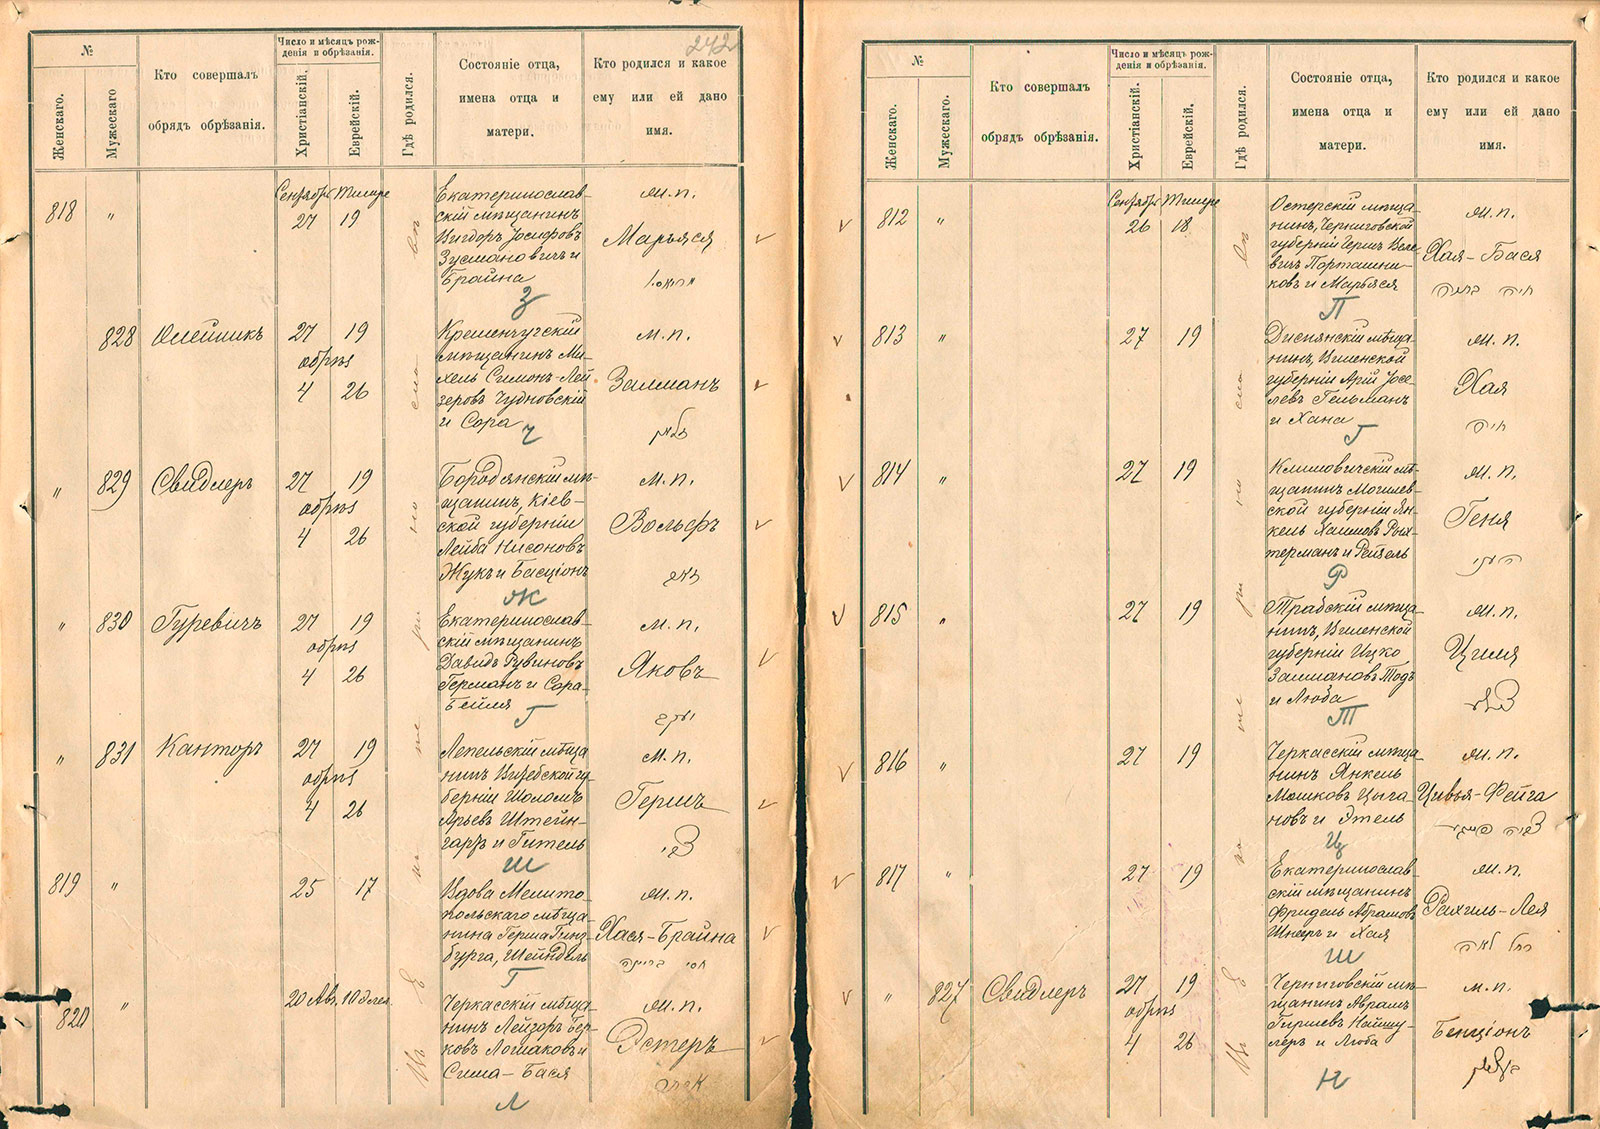 242
№
Женскаго.
Мужескаго
Кто совершалъ
обрядъ обрѣзанія.
Число и мѣсяцъ рож-
денія и обрѣзанія.
Христіанскій.
Еврейскій.
Гдѣ родился.
Состояніе отца,
имена отца и
матери.
Кто родился и какое
ему или ей дано
имя.
818
"
Сентябрь Тишре
27 19
Екатеринослав-
скій мѣщанинъ
Вигдоръ Іосифовъ
Зусмановичъ и
Брайна
З
ж.п.
Марьяся
828
Олейникъ
27 19
обрѣз
4 26
Кременчугскій
мѣщанинъ Ми-
хель Симонъ-Лей
зеровъ Чудновскій
и Сора
Ч
м.п.
Залманъ
זלמן
"
829
Свидлеръ
27 19
обрѣз
4 26
Бородянскій мѣ-
щанинъ, Кіев-
ской губерніи
Лейба Нисоновъ
Жукъ и Басціонъ
Ж
м.п.
Вольфъ
זאב
"
830
Гуревичъ
27 19
обрѣз
4 26
Екатеринослав-
скій мѣщанинъ
Давидъ Рувиновъ
Германъ и Сора-
Бейля
Г
м.п.
Яковъ
יעקב
"
831
Канторъ
27 19
обрѣз
4 26
Лепельскій мѣща
нинъ Витебской гу-
берніи Шоломъ
Арьевъ Штейн-
гартъ и Гитель
Ш
м.п.
Гершъ
צבי
819
"
25 17
Вдова Мелито-
польскаго мѣща-
нина Герша Гинз-
бурга, Шейндель
Г
ж.п.
Хася-Брайна
חסי בריינה
820
"
20 Авг. 10 Элел.
Черкасскій мѣща
нинъ Лейзоръ Бер-
ковъ Лошаковъ и
Сима-Бася
Л
ж.п.
Эстеръ
אסתר
Въ Екатеринославѣ
№
Женскаго.
Мужескаго.
Кто совершалъ
обрядъ обрѣзанія.
Число и мѣсяцъ рож-
денія и обрѣзанія.
Христіанскій.
Еврейскій.
Гдѣ родился.
Состояніе отца,
имена отца и
матери.
Кто родился и какое
ему или ей дано
имя.
812
"
Сентябрь Тишре
26 18
Остерскій мѣща
нинъ, Черниговской
губерніи Гершъ
вичъ Порташни-
ковъ и Марьяся
П
ж.п.
Хая-Бася
חיה באסיה
813
"
27 19
Диснянскій мѣща
нинъ, Виленской
губерніи Арій Іосе-
левъ Гельманъ
и Хана
Г
ж.п.
Хая
חיה
814
"
27 19
Климовичскій мѣ-
щанинъ Могилев-
ской губерніи Ян-
кель Хаимовъ Рых-
терманъ и Рейзель
Р
ж.п.
Геня
815
"
27 19
Трабскій мѣща-
нинъ, Виленской
губерніи Ицко
Залмановъ Тодъ
и Люба
Т
ж.п.
Циля
816
"
27 19
Черкасскій мѣща
нинъ Янкель
Мошковъ Цыга-
новъ и Этель
Ц
ж.п.
Цивья-Фейга
צביה פייגע
817
"
27 19
Екатеринослав-
скій мѣщанинъ
Фридель Абрамовъ
Шнееръ и Хая
Ш
ж.п.
Рахиль-Лея
רחל לאה
"
827
Свидлеръ
27 19
обрѣз
4 26
Черниговскій мѣ-
щанинъ Аврамъ
Гиршевъ Найшу-
леръ и Люба
Н
м.п.
Бенціонъ
בן ציון
Въ Екатеринославѣ